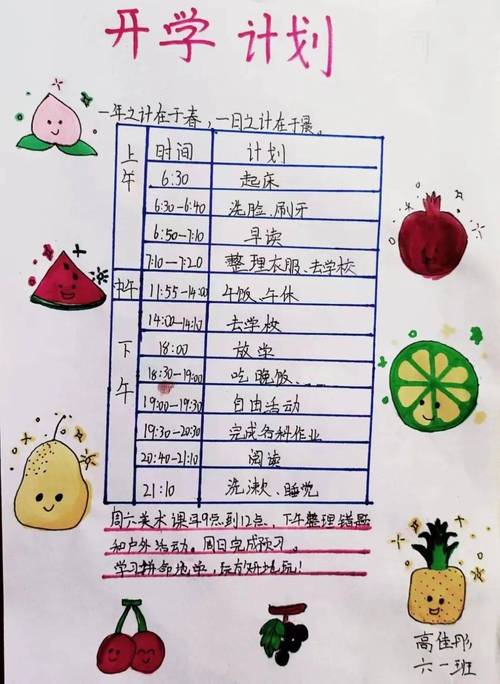 开学 计划
一年之计在于春，一日之计在于晨。
上午 时间 计划
6:30 起床
6:30-6:40 洗脸、刷牙
6:50-7:10 早读
7:10-7:20 整理衣服、去学校
中午 11:55-14:00 午饭、午休
下午 14:00-14:10 去学校
18:00 放学
18:30-19:00 吃晚饭、……
19:00-19:30 自由活动
19:30-20:30 完成各科作业
20:40-21:10 阅读
21:10 洗漱、睡觉
周六美术课早9点到12点，下午整理错题
和户外活动。周日完成预习。
学习拼命地学，玩拼地玩！
高佳彤
六一班